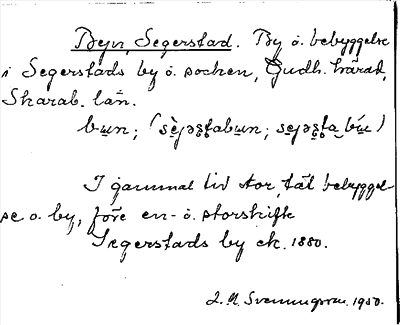 Byn, Segerstad. By o. bebyggelse
i Segerstads by o. socken, Gudh. härad,
Skarab. län.
bu̲n; (sè̲jəs̭ṱabu̲n; se̲jəs̭ṱa̲ bú̲)
I gammal tid stor, tät bebyggel-
se o. by, före en- o. storskifte
Segerstads by ek. 1880.
1950.